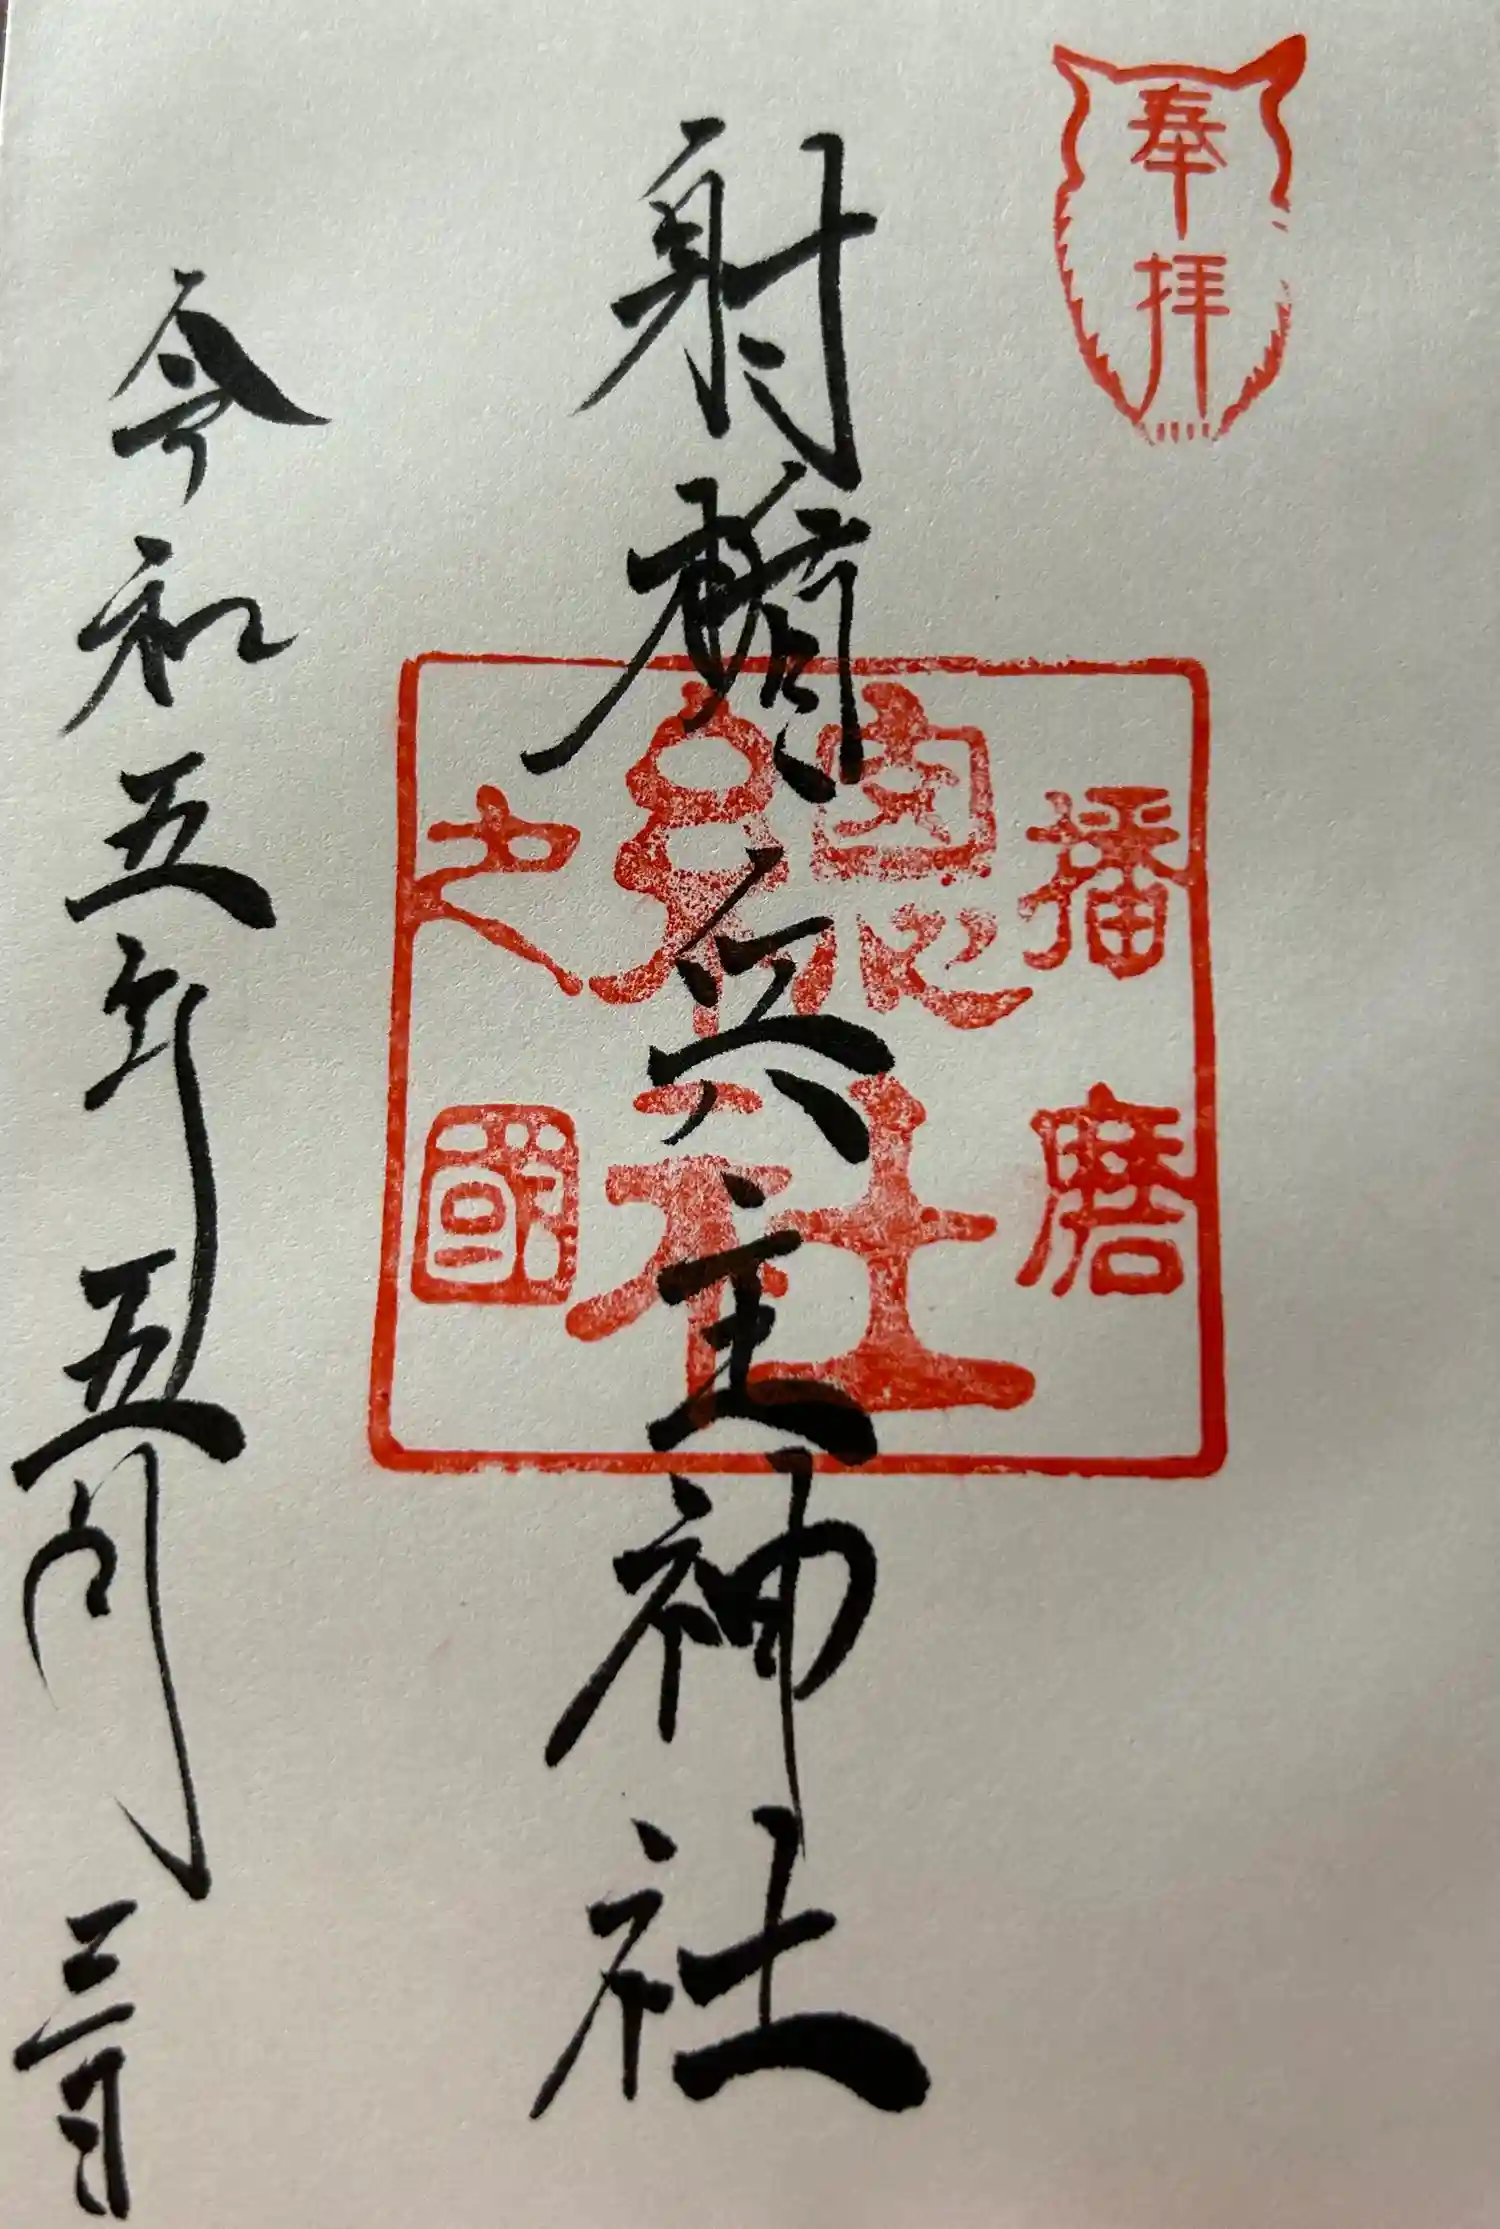 奉拝
射楯兵主神社
播磨
総社
之國
令和五年五月三日